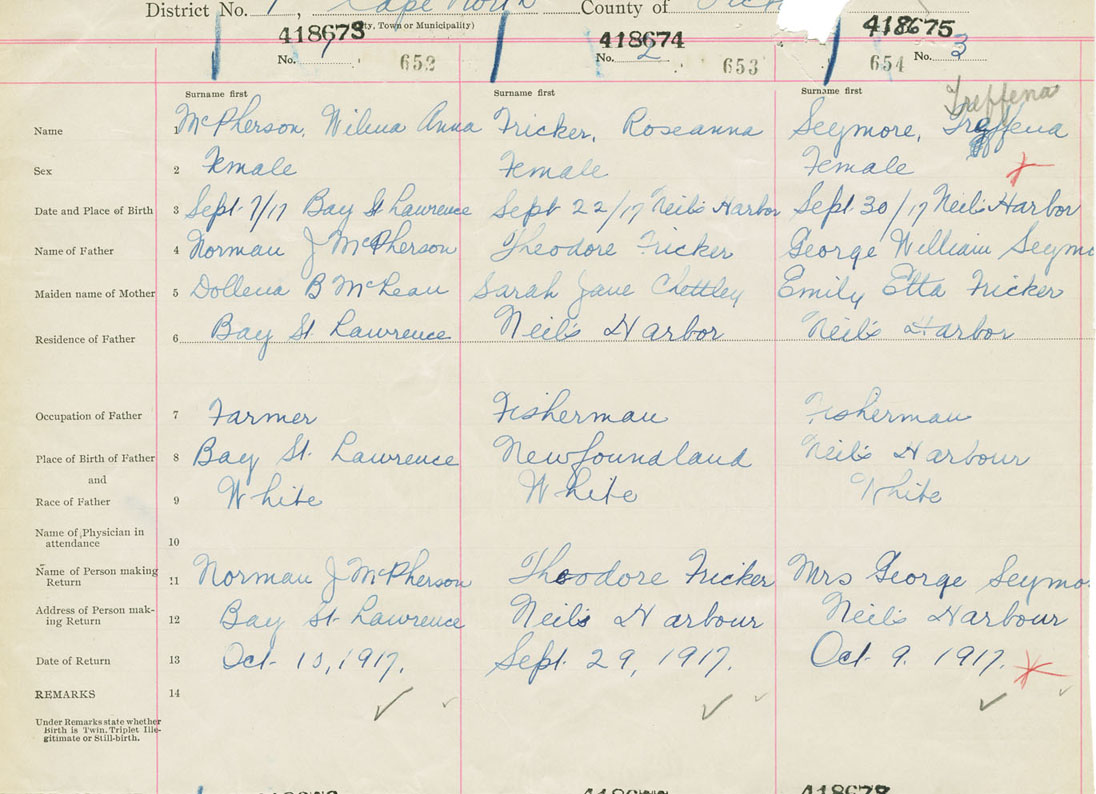 District No. 1, Cape North County of
(City, Town or Municipality)
418673 418674 418675
No. 1 652 No. 2 653 654 No. 3
Surname first Surname first Surname first Treffena
Name 1 McPherson, Wilena Anna Fricker, Roseanna Seymore, Treffena
Sex 2 Female Female Female
Date and Place of Birth 3 Sept 7/17 Bay St Lawrence Sept 22/17 Neil's Harbor Sept 30/17 Neil's Harbor
Name of Father 4 Norman J McPherson Theodore Fricker George William Seymo
Maiden name of Mother 5 Dollena B McLean Sarah Jane Chettley Emily Etta Fricker
Residence of Father 6 Bay St Lawrence Neil's Harbor Neil's Harbor
Occupation of Father 7 Farmer Fisherman Fisherman
Place of Birth of Father 8 Bay St. Lawrence Newfoundland Neil's Harbour
and
Race of Father 9 White White White
Name of Physician in
attendance 10
Name of Person making
Return 11 Norman J McPherson Theodore Fricker Mrs George Seymo
Address of Person mak-
ing Return 12 Bay St Lawrence Neil's Harbour Neil's Harbour
Date of Return 13 Oct. 10, 1917. Sept. 29, 1917. Oct 9. 1917.
REMARKS 14
Under Remarks state whether
Birth is Twin, Triplet Ille-
gitimate or Still-birth.